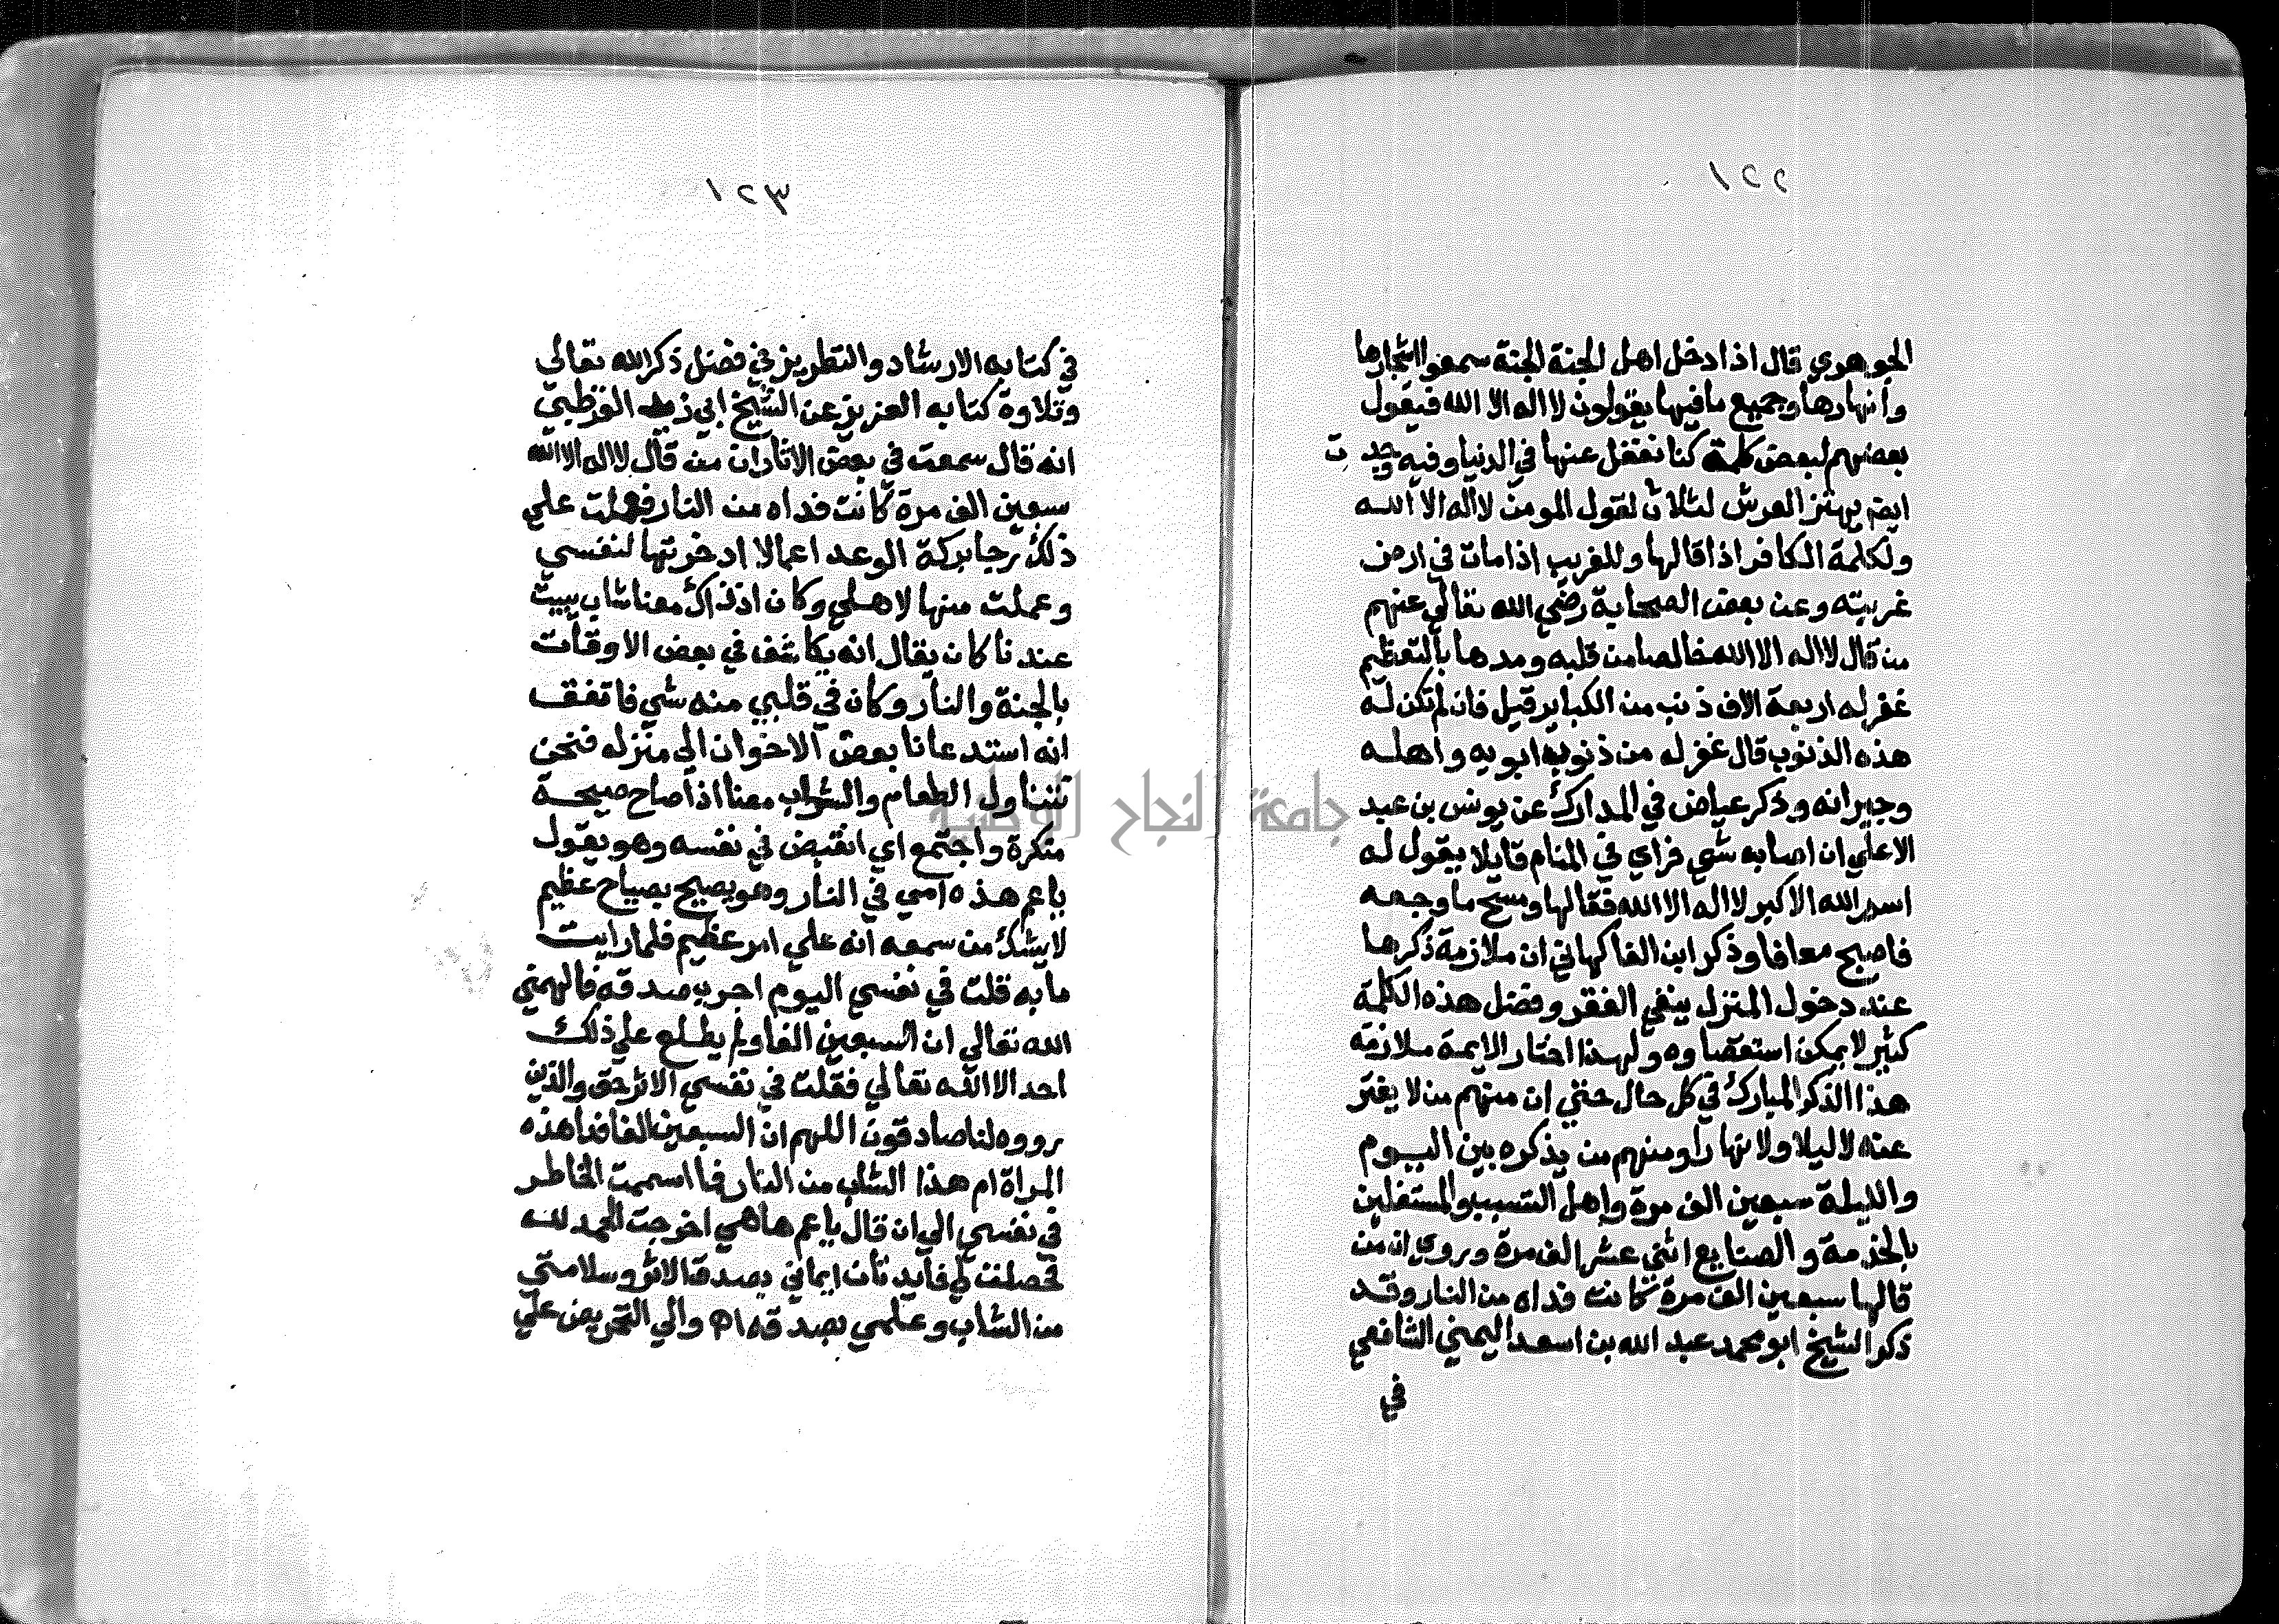 ١٢٢
الجوهري قال اذا دخل اهل الجنة الجنة سمعوا اشجارها
وانهارها وجميع ما فيها يقولون لا اله الا الله فيقول
بعضهم لبعض كلمة كنا نغفل عنها في الدنيا وفيه
ايضا يهتز العرش لثلاث لقول المومن لا اله الا الله
ولكلمة الكافر اذا قالها وللغريب اذا مات في ارض
غربته وعن بعض الصحابة رضي الله تعالي عنهم
من قال لا اله الا الله خالصا من قلبه ومدها بالتعظيم
غفر له اربعة الاف ذنب من الكباير قيل فان لم تكن له
هذه الذنوب قال غفر له من ذنوب ابويه واهله
وجيرانه وذكر عياض في المدارك عن يونس بن عبد
الاعلي ان اصابه شي فراي في المنام قايلا يقول له
اسم الله الاكبر لا اله الا الله فقالها ومسح ما وجعه
فاصبح معافا وذكر ابن الفاكهاني ان ملازمة ذكرها
عند دخول المنزل ينفي الفقر وفضل هذه الكلمة
كثير لا يمكن استقصاوه ولهذا اختار الايمة ملازمة
هذا الذكر المبارك في كل حال حتي ان منهم من لا يفتر
عنه لا ليلا ولا نهارا ومنهم من يذكره بين اليوم
والليلة سبعين الف مرة واهل التسبب والمشتغلين
بالخدمة والصنايع اثني عشر الف مرة وروي ان من
قالها سبعين الف مرة كانت فداه من النار وقد
ذكر الشيخ ابو محمد عبد الله بن اسعد اليمني الشافعي
في
١٢٣
في كتابه الارشاد والتطريز في فضل ذكر الله تعالي
وتلاوة كتابه العزيز عن الشيخ ابي زيد القرطبي
انه قال سمعت في بعض الاثار ان من قال لا اله الا الله
سبعين الف مرة كانت فداه من النار فعملت علي
ذلك رجا بركة الوعد اعمالا ادخرتها لنفسي
وعملت منها لاهلي وكان اذ ذاك معنا شاب يبيت
عندنا كان يقال انه يكاشف في بعض الاوقات
بالجنة والنار وكان في قلبي منه شي فاتفق
انه استدعانا بعض الاخوان الي منزله فنحن
نتناول الطعام والشاب معنا اذ صاح صيحة
منكرة واجتمع اي انقبض في نفسه وهو يقول
ياعم هذه امي في النار وهو يصيح بصياح عظيم
لا يشك من سمعه انه علي امر عظيم فلما رايت
ما به قلت في نفسي اليوم اجرب صدقه فالهمني
الله تعالي ان السبعين الفا ولم يطلع علي ذلك
احد الا الله تعالي فقلت في نفسي الاثر حق والذين
رووه لنا صادقون اللهم ان السبعين الفا فدا هذه
المراة ام هذا الشاب من النار فما استتمت الخاطر
في نفسي الي ان قال ياعم هاهي اخرجت الحمد لله
فحصلت لي فايدتان ايماني بصدق الاثر وسلامتي
من الشاب وعلمي بصدقه اه والي التحريض علي
جامعة النجاح الوطنية